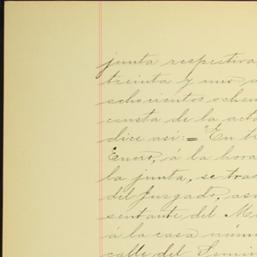 junta respectiva
treinta y uno
ochocientos ochen
consta de la acta
dice así: = En tr
Enero, á la hora
la junta, se tras
del Juzgado, aso
sentante del M
á la casa núme
calle del Semin